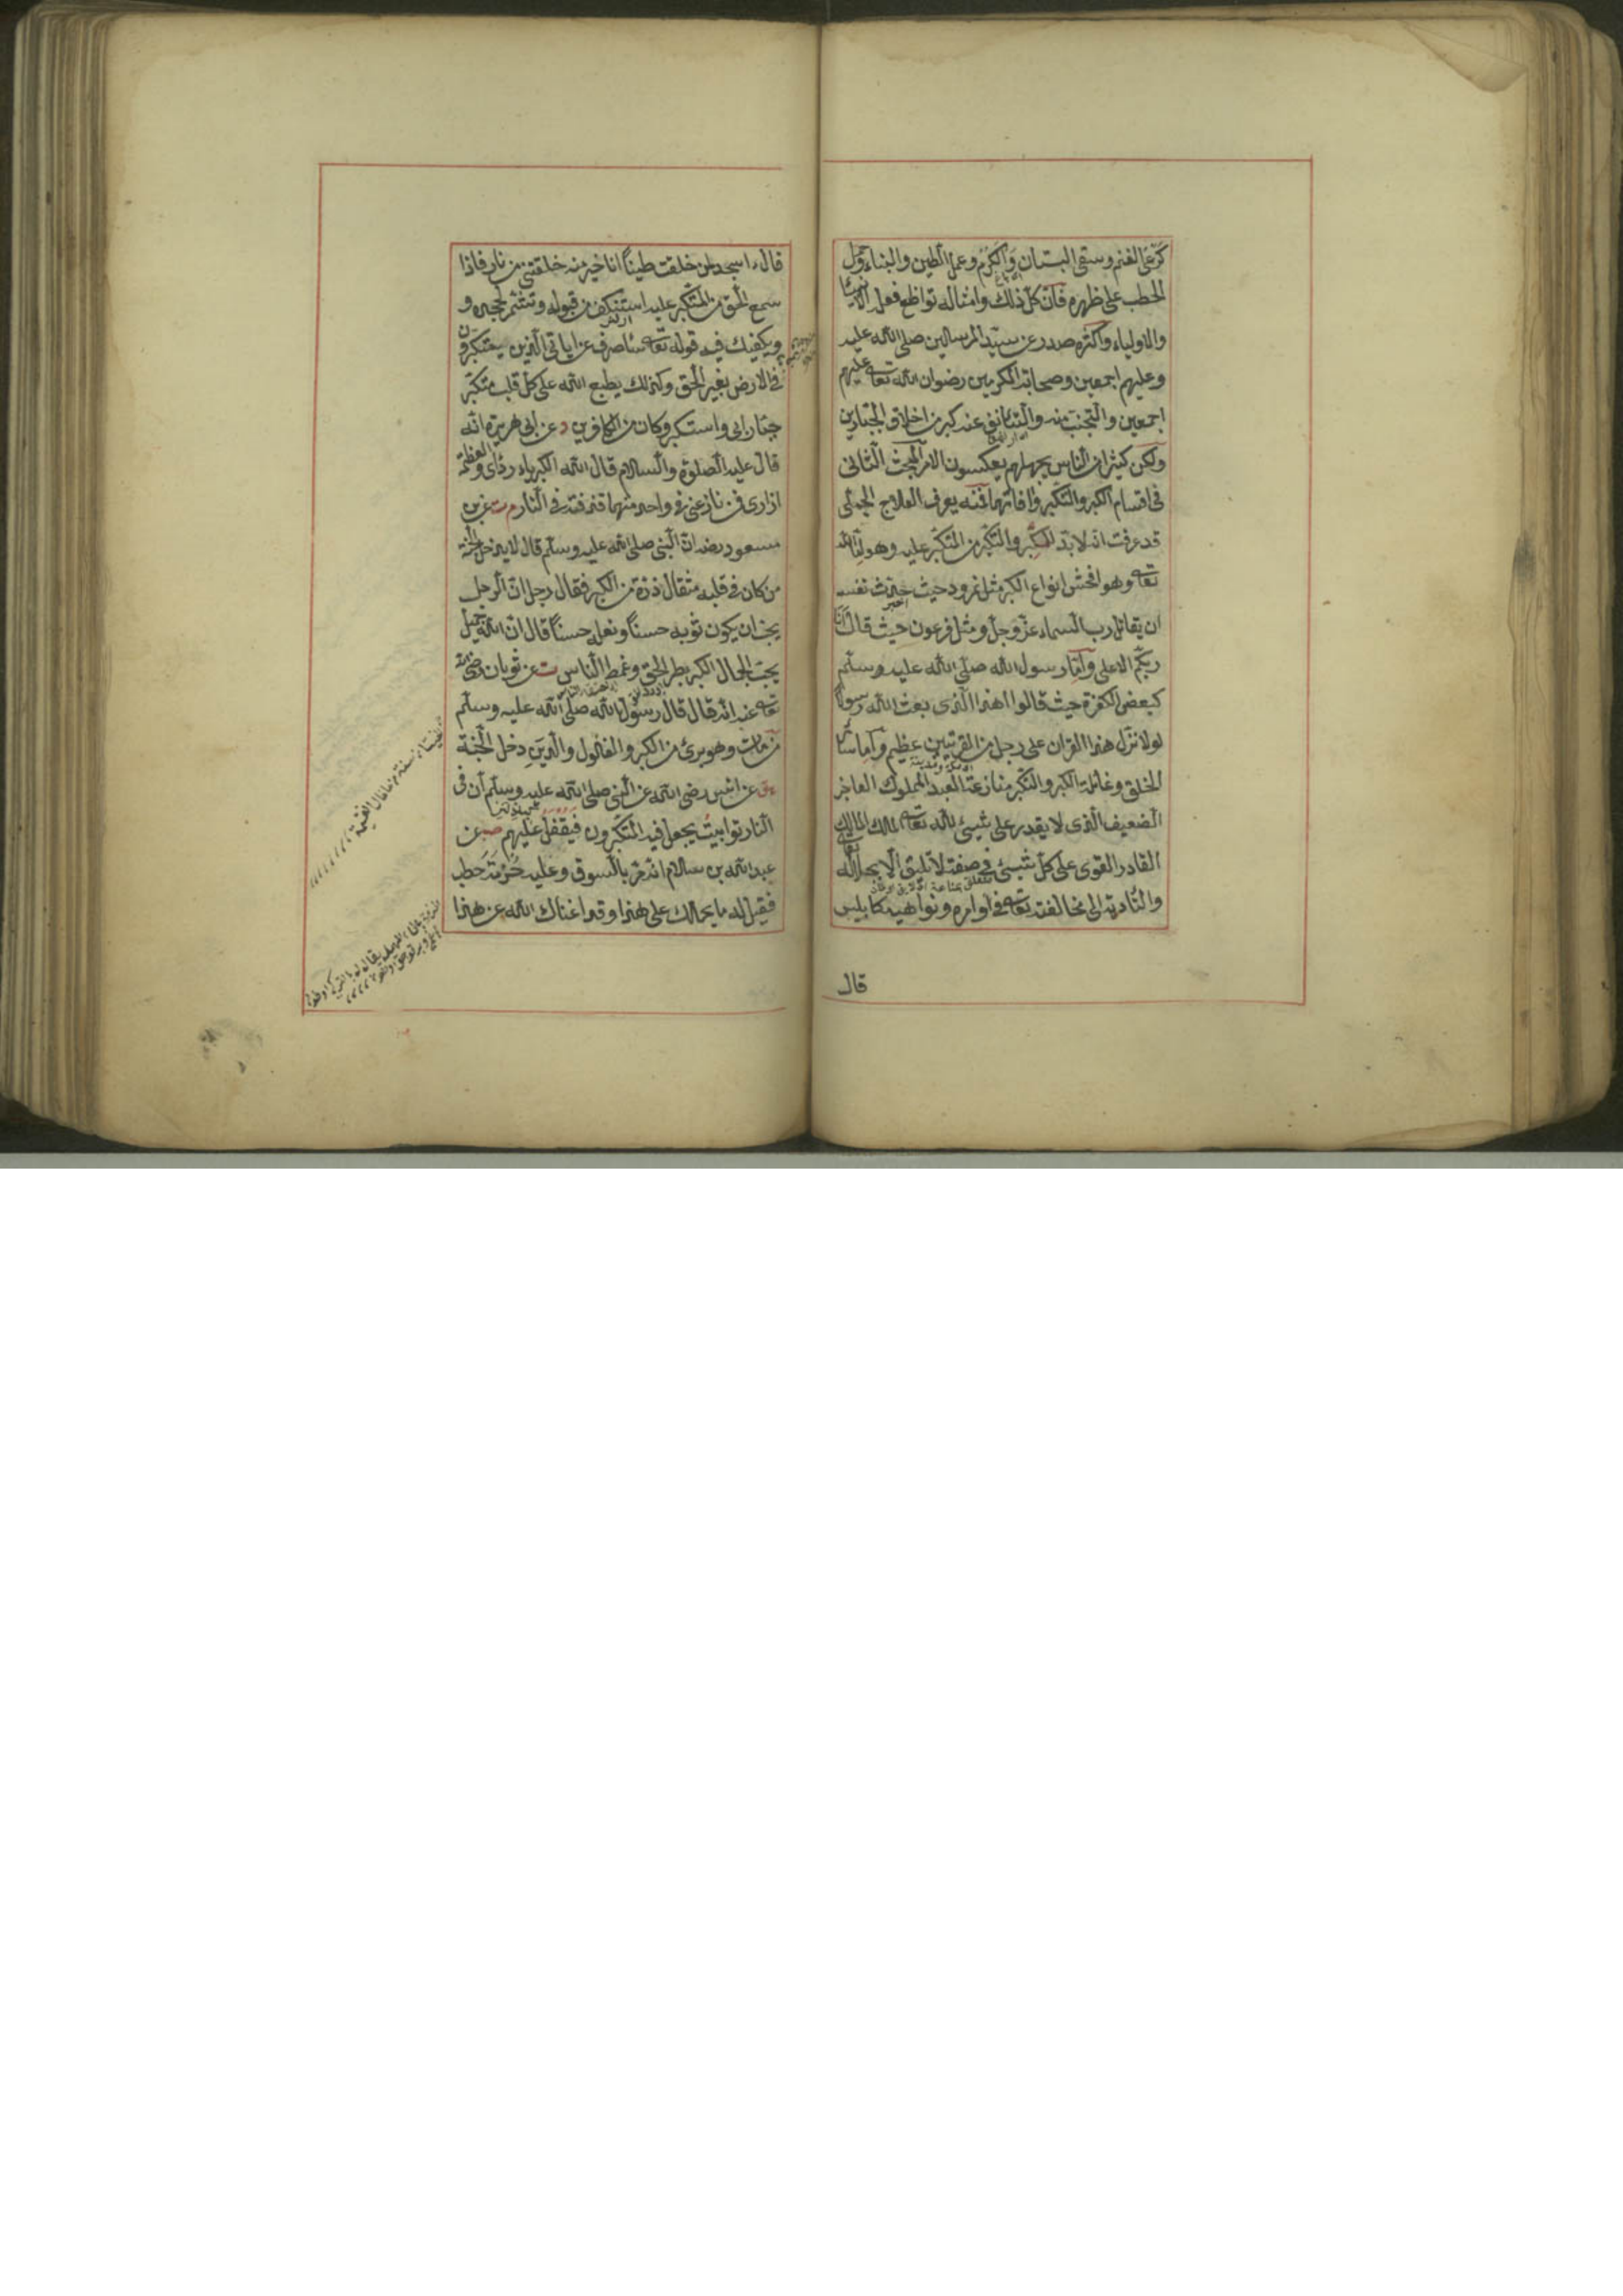 كرعى الغنم وسقى البستان والكرم وعمل الطين والبناء وحمل
الحطب على ظهره فان كل ذلك وامثاله تواضع فعل الانبياء
والاولياء واكثره صدر عن سيد المرسلين صلى الله عليه
وعليهم اجمعين وصحابته المكرمين رضوان الله تعالى عليهم
اجمعين والتجنب منه والتأنف عنه كبر من اخلاق الجبارين
ولكن كثيرا من الناس بجهلهم يعكسون الامر المبحث الثانى
فى اقسام الكبر والتكبر وافاتهما فمنه يعرف العلاج الجملى
قد عرفت انه لا بد للكبر والتكبر من المتكبر عليه وهو اما الله
تعالى وهو افحش انواع الكبر مثل نمرود حيث حدث نفسه
ان يقاتل رب السماء عز وجل ومثل فرعون حيث قال انا
ربكم الاعلى واما رسول الله صلى الله عليه وسلم
كبعض الكفرة حيث قالوا اهذا الذى بعث الله رسولا
لولا نزل هذا القران على رجل من القريتين عظيم واما سائر
الخلق وغائلة الكبر والتكبر منازعة العبد المملوك العاجز
الضعيف الذى لا يقدر على شئ لله تعالى المالك الملك
القادر القوى على كل شئ فى صفة لا تليق الا بجلاله تعالى
والتأدية الى مخالفته تعالى فى اوامره ونواهيه كابليس
قال
قال ءاسجد لمن خلقت طينا انا خير منه خلقتنى من نار فاذا
سمع الحق من المتكبر عليه استنكف من قبوله وتشمر لجحده و
ويكفيك فيه قوله تعالى ساصرف عن اياتى الذين يتكبرون
فى الارض بغير الحق وكذلك يطبع الله على كل قلب متكبر
جبار ابى واستكبر وكان من الكافرين د عن ابى هريرة انه
قال عليه الصلوة والسلام قال الله الكبرياء ردائى والعظمة
ازارى فمن نازعنى فى واحد منهما قذفته فى النار م ت عن بن
مسعود رضه ان النبى صلى الله عليه وسلم قال لا يدخل الجنة
من كان فى قلبه مثقال ذرة من الكبر فقال رجل ان الرجل
يحب ان يكون ثوبه حسنا ونعله حسنا قال ان الله جميل
يحب الجمال الكبر بطر الحق وغمط الناس ت عن ثوبان رضى الله
تعالى عنه انه قال قال رسول الله صلى الله عليه وسلم
من مات وهو برئ من الكبر والغلول والدين دخل الجنة
هق عن انس رضى الله عن النبى صلى الله عليه وسلم ان فى
النار توابيت يجعل فيه المتكبرون فيقفل عليهم صب عن
عبد الله بن سلام انه مر بالسوق وعليه حزمة حطب
فقيل له ما يحملك على هذا وقد اغناك الله عن هذا